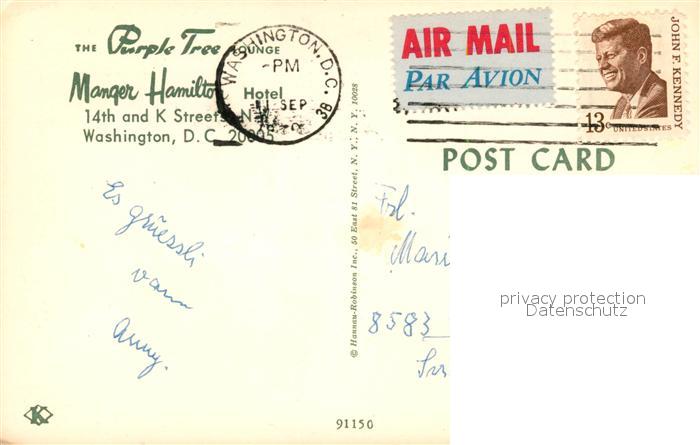 THE Purple Tree LOUNGE
Manger Hamilton Hotel
14th and K Streets, N.
Washington, D. C. 20005
WASHINGTON, D.C.
-PM
11 SEP
38
AIR MAIL
PAR AVION
JOHN F. KENNEDY
13c UNITED STATES
POST CARD
Es grüessli
vom
Anny.
© Hannau-Robinson Inc., 50 East 81 Street, N. Y., N. Y. 10028
Frl.
Mari
8583
privacy protection
Datenschutz
K
91150